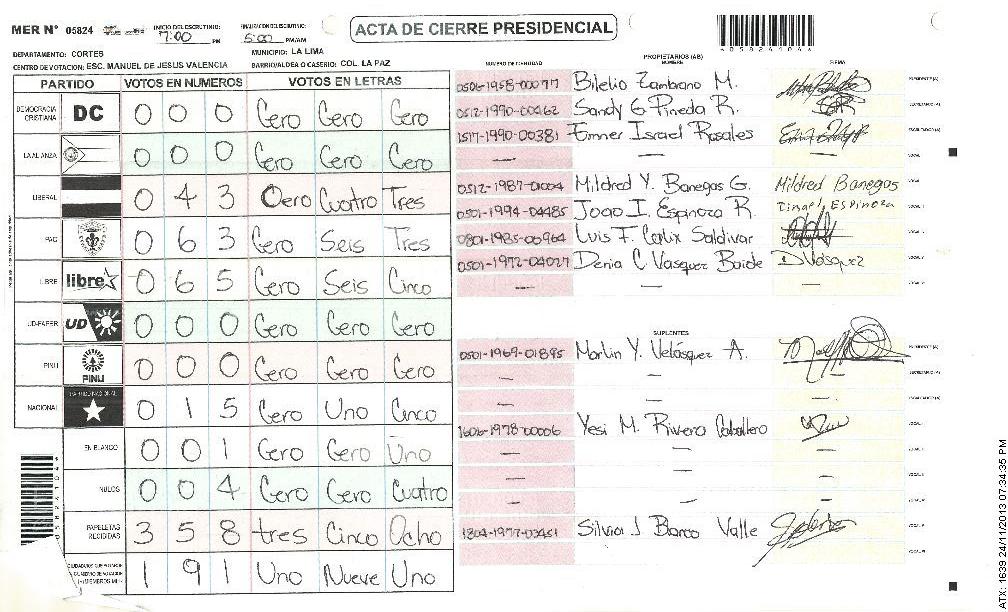 MER N° 05824 INICIO DEL ESCRUTINIO: 7:00 PM FINALIZACION DEL ESCRUTINIO: 5:00 PM/AM ACTA DE CIERRE PRESIDENCIAL
DEPARTAMENTO: CORTES MUNICIPIO: LA LIMA
CENTRO DE VOTACION: ESC. MANUEL DE JESUS VALENCIA BARRIO/ALDEA O CASERIO: COL. LA PAZ
PARTIDO VOTOS EN NUMEROS VOTOS EN LETRAS
DEMOCRACIA CRISTIANA DC 0 0 0 Cero Cero Cero
LA ALIANZA 0 0 0 Cero Cero Cero
LIBERAL 0 4 3 Cero Cuatro Tres
PAC 0 6 3 Cero Seis Tres
LIBRE libre 0 6 5 Cero Seis Cinco
UD-FAPER UD 0 0 0 Cero Cero Cero
PINU PINU 0 0 0 Cero Cero Cero
NACIONAL PARTIDO NACIONAL 0 1 5 Cero Uno Cinco
EN BLANCO 0 0 1 Cero Cero Uno
NULOS 0 0 4 Cero Cero Cuatro
PAPELETAS RECIBIDAS 3 5 8 tres Cinco Ocho
1 9 1 Uno Nueve Uno
NUMERO DE IDENTIDAD PROPIETARIOS (AS) NOMBRE FIRMA
0506-1958-00077 Bilelio Zambrano M.
0512-1990-00462 Sandy G Pineda R.
1517-1990-00381 Emner Israel Rosales
—
0512-1987-01004 Mildred Y. Banegas G. Mildred Banegas
0501-1994-04485 Joao I. Espinoza R. ESPINOZA
0801-1985-00964 Luis F. Calix Saldivar
0501-1972-04027 Denia C Vasquez Buide D Vásquez
—
SUPLENTES
0501-1969-01895 Marlin Y. Velásquez A.
—
—
1606-1978-00006 Yesi M. Rivera Caballero
—
—
—
1804-1977-03451 Silvia J Blanco Valle
ATX: 1639 24/11/2013 07:34:35 PM